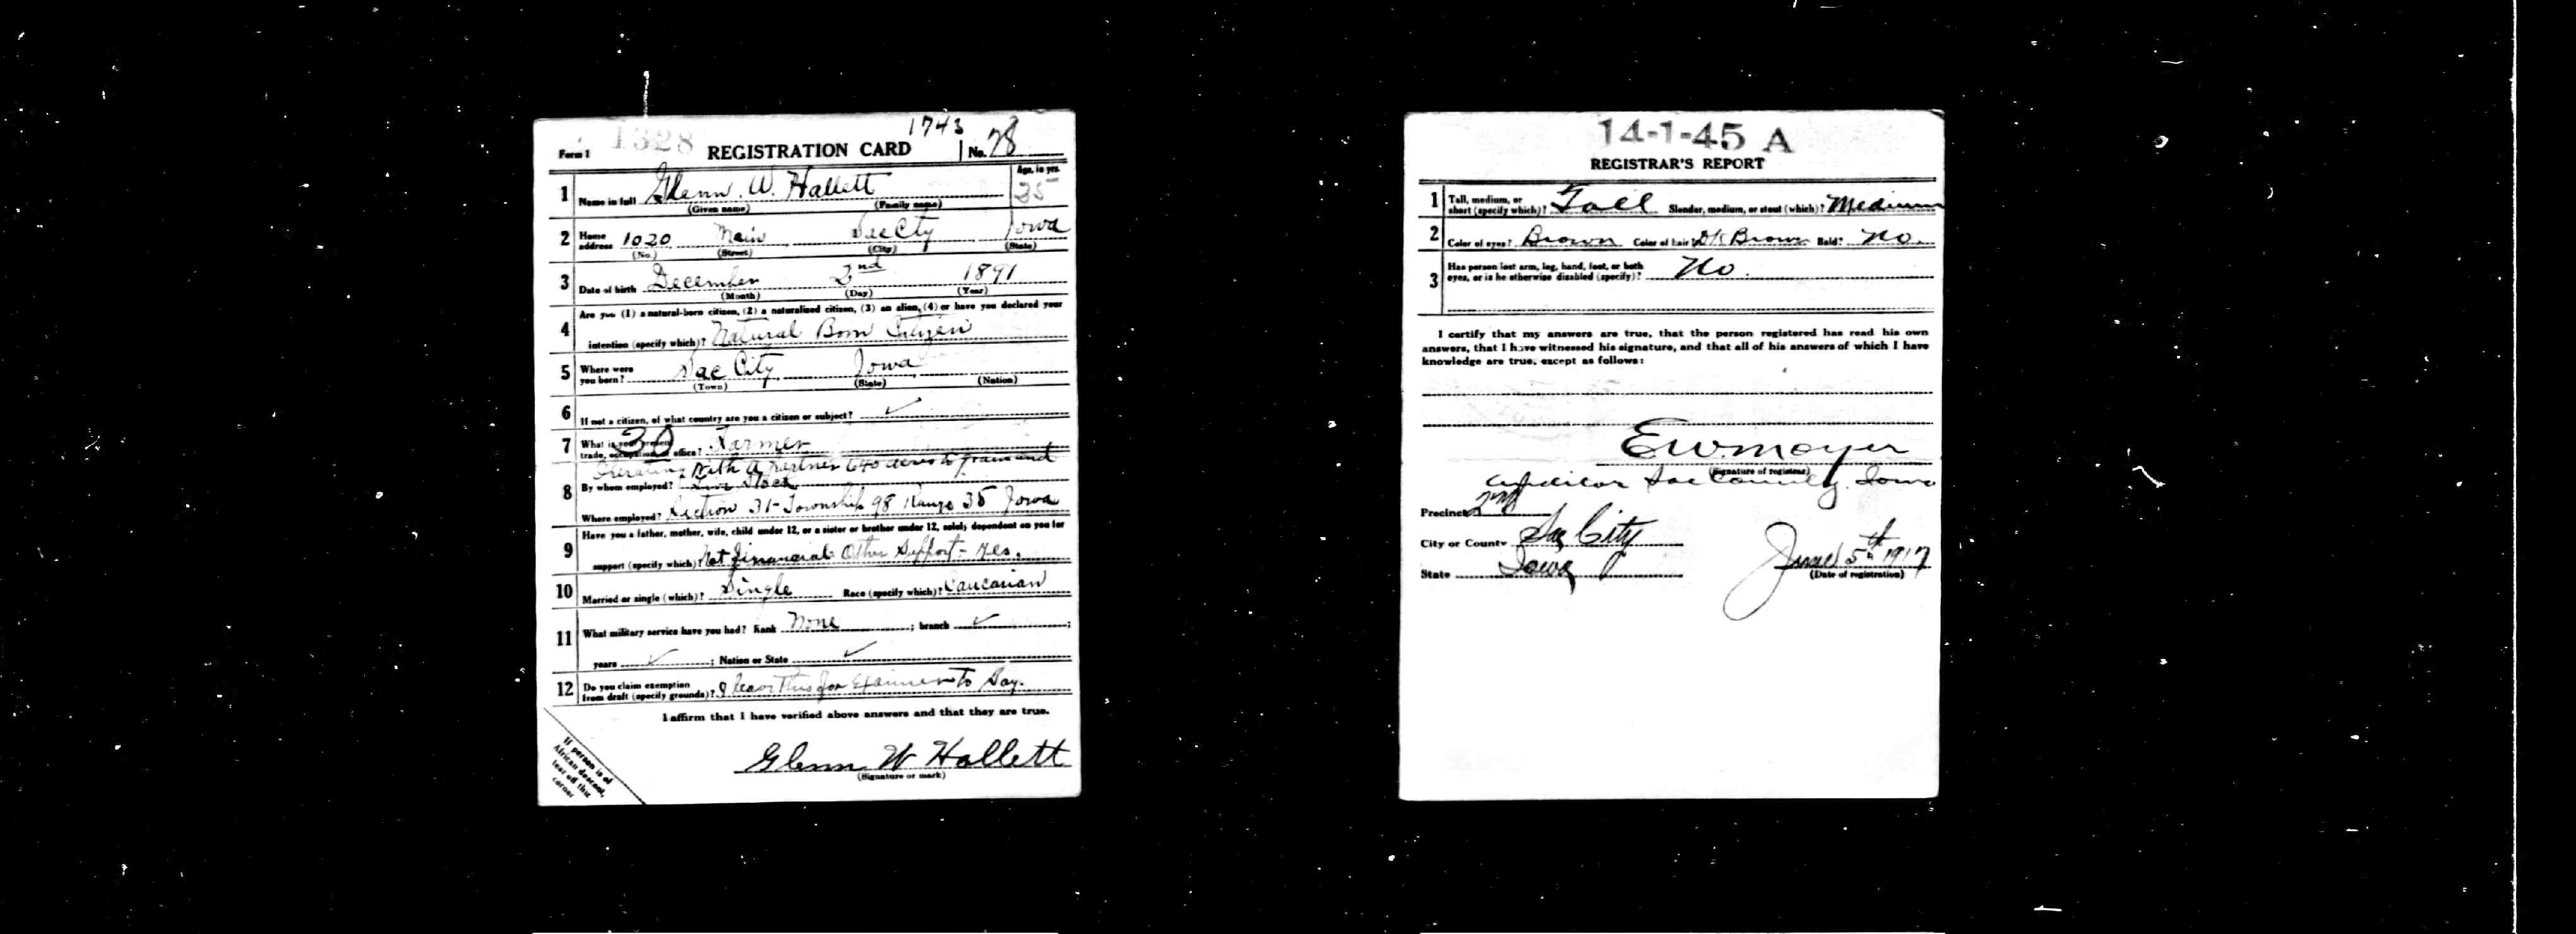 1743
1328
Form 1 REGISTRATION CARD No. 78
Age, in yrs.
1 Name in full Glenn W. Hallett 25
(Given name) (Family name)
2 Home address 1020 Main Sac City Iowa
(No.) (Street) (City) (State)
3 Date of birth December 2nd 1891
(Month) (Day) (Year)
Are you (1) a natural-born citizen, (2) a naturalized citizen, (3) an alien, (4) or have you declared your
4 intention (specify which)? Natural Born Citizen
5 Where were you born? Sac City Iowa
(Town) (State) (Nation)
6 If not a citizen, of what country are you a citizen or subject? ✓
7 What is your present trade, occupation, or office? 30 Farmer
Operating With A Partner 640 acres to grain and
8 By whom employed? Live Stock
Where employed? Section 31-Township 98 Range 35 Iowa
Have you a father, mother, wife, child under 12, or a sister or brother under 12, solely dependent on you for
9 support (specify which)? Not financial Other Support - Yes.
10 Married or single (which)? Single Race (specify which)? Caucasian
11 What military service have you had? Rank None ; branch ✓ ;
years ✓ ; Nation or State ✓
12 Do you claim exemption from draft (specify grounds)? I leave This for Examiner to Say.
I affirm that I have verified above answers and that they are true.
Glenn W Hallett
(Signature or mark)
If person is of
African descent,
tear off this
corner
14-1-45 A
REGISTRAR'S REPORT
1 Tall, medium, or short (specify which)? Tall Slender, medium, or stout (which)? Medium
2 Color of eyes? Brown Color of hair? Dk Brown Bald? No
3 Has person lost arm, leg, hand, foot, or both eyes, or is he otherwise disabled (specify)? No.
I certify that my answers are true, that the person registered has read his own
answers, that I have witnessed his signature, and that all of his answers of which I have
knowledge are true, except as follows:
E W Moyer
(Signature of registrar)
Auditor Sac County Iowa
Precinct 2nd
City or County Sac City
State Iowa
June 5th 1917
(Date of registration)